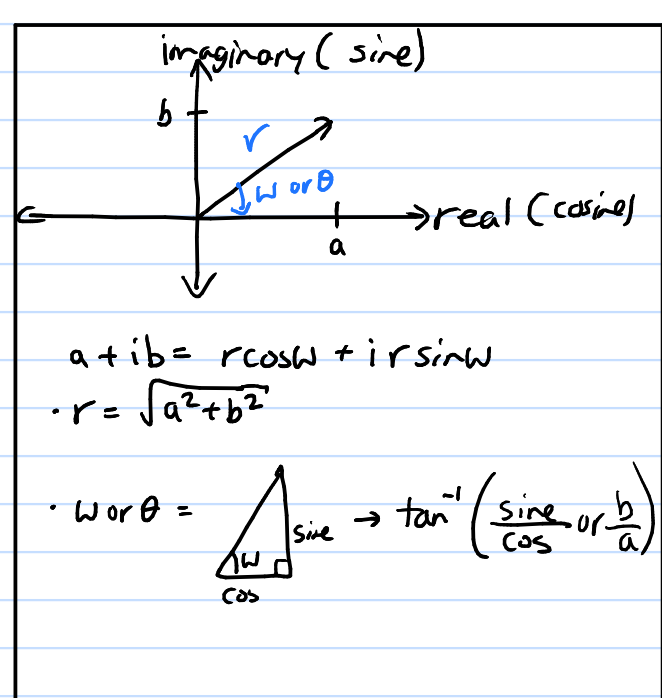 imaginary ( sine)
b
r
w or θ
real (cosine)
a
a + ib = rcosw + irsinw
· r = √a²+b²
· w or θ = w sine cos → tan⁻¹ (sine/cos or b/a)